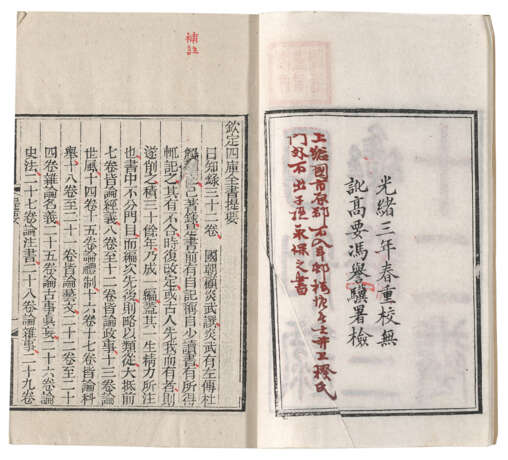 光緒三年春重校無
訛高要馮譽驥署檢
門外石出子孫永保之書
補註
欽定四庫全書提要
日知錄三十二卷 國朝顧炎武譔炎武有左傳杜
解 已著錄是書前有自記稱自少讀書有所得
輒記之其有不合時復改定或古人先我而有者則
遂削之積三十餘年乃成一編蓋其一生精力所注
也書中不分門目而編次先後則略以類從大抵前
七卷皆論經義八卷至十二卷皆論政事十三卷論
世風十四卷十五卷論禮制十六卷十七卷皆論科
舉十八卷至二十一卷皆論藝文二十二卷至二十
四卷雜論名義二十五卷論古事真妄二十六卷論
史法二十七卷論注書二十八卷論雜事二十九卷